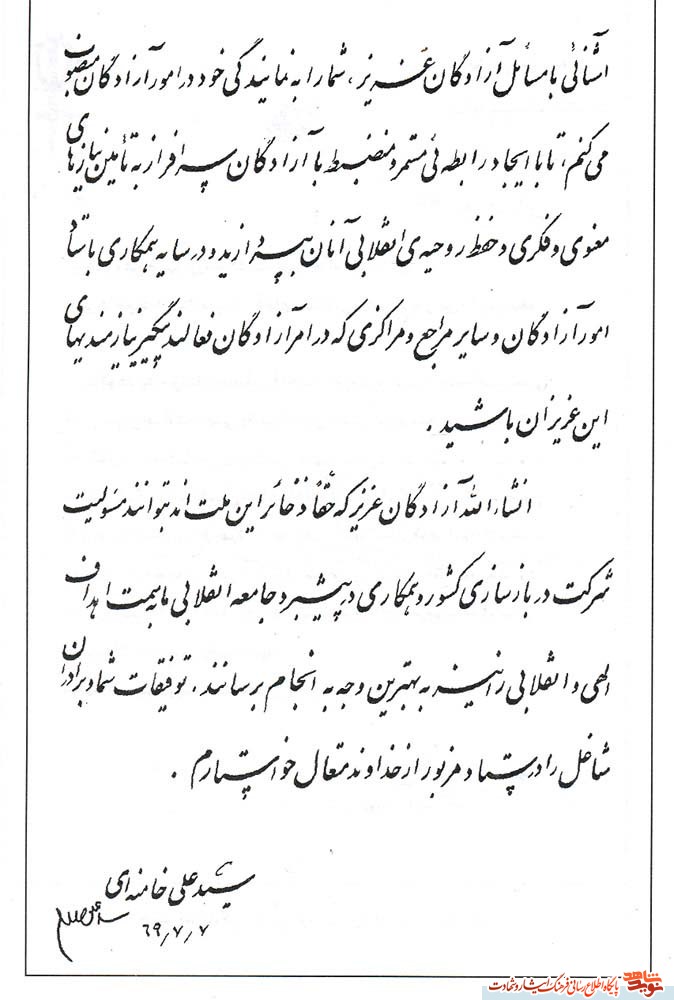 آشنائی با مسائل آزادگان عزیز، شما را به نمایندگی خود در امور آزادگان منصوب
می‌کنم، تا با ایجاد رابطه‌ئی مستمر و منضبط با آزادگان سرافراز به تأمین نیازهای
معنوی و فکری و حفظ روحیه‌ی انقلابی آنان بپردازید و در سایه همکاری با ستاد
امور آزادگان و سایر مراجع و مراکزی که در امر آزادگان فعالند پیگیر نیازمندیهای
این عزیزان باشید.
انشاءالله آزادگان عزیز که حقاً ذخائر این ملت‌اند بتوانند مسئولیت
شرکت در بازسازی کشور و همکاری در پیشبرد جامعه انقلابی ما به سمت اهداف
الهی و انقلابی را نیز به بهترین وجه به انجام برسانند، توفیقات شما و برادران
شاغل را در ستاد مزبور از خداوند متعال خواستارم.
سید علی خامنه‌ای
۶۹/۷/۷
نوید شاهد
پایگاه اطلاع رسانی فرهنگ ایثار و شهادت